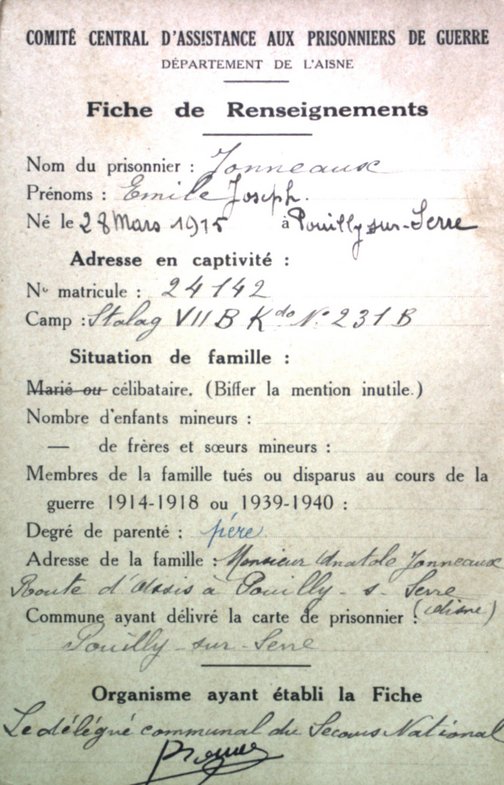 COMITÉ CENTRAL D'ASSISTANCE AUX PRISONNIERS DE GUERRE
DÉPARTEMENT DE L'AISNE
Fiche de Renseignements
Nom du prisonnier : Jonneaux
Prénoms : Emile Joseph.
Né le 28 Mars 1915 à Pouilly sur-Serre
Adresse en captivité :
No matricule : 24142
Camp : Stalag VII B Kdo No 231 B
Situation de famille :
Marié ou célibataire. (Biffer la mention inutile.)
Nombre d'enfants mineurs :
— de frères et sœurs mineurs :
Membres de la famille tués ou disparus au cours de la
guerre 1914-1918 ou 1939-1940 :
Degré de parenté : père
Adresse de la famille : Monsieur Anatole Jonneaux
Route d'Assis à Pouilly - s - Serre
Commune ayant délivré la carte de prisonnier : (Aisne)
Pouilly - sur - Serre
Organisme ayant établi la Fiche
Le délégué communal du Secours National